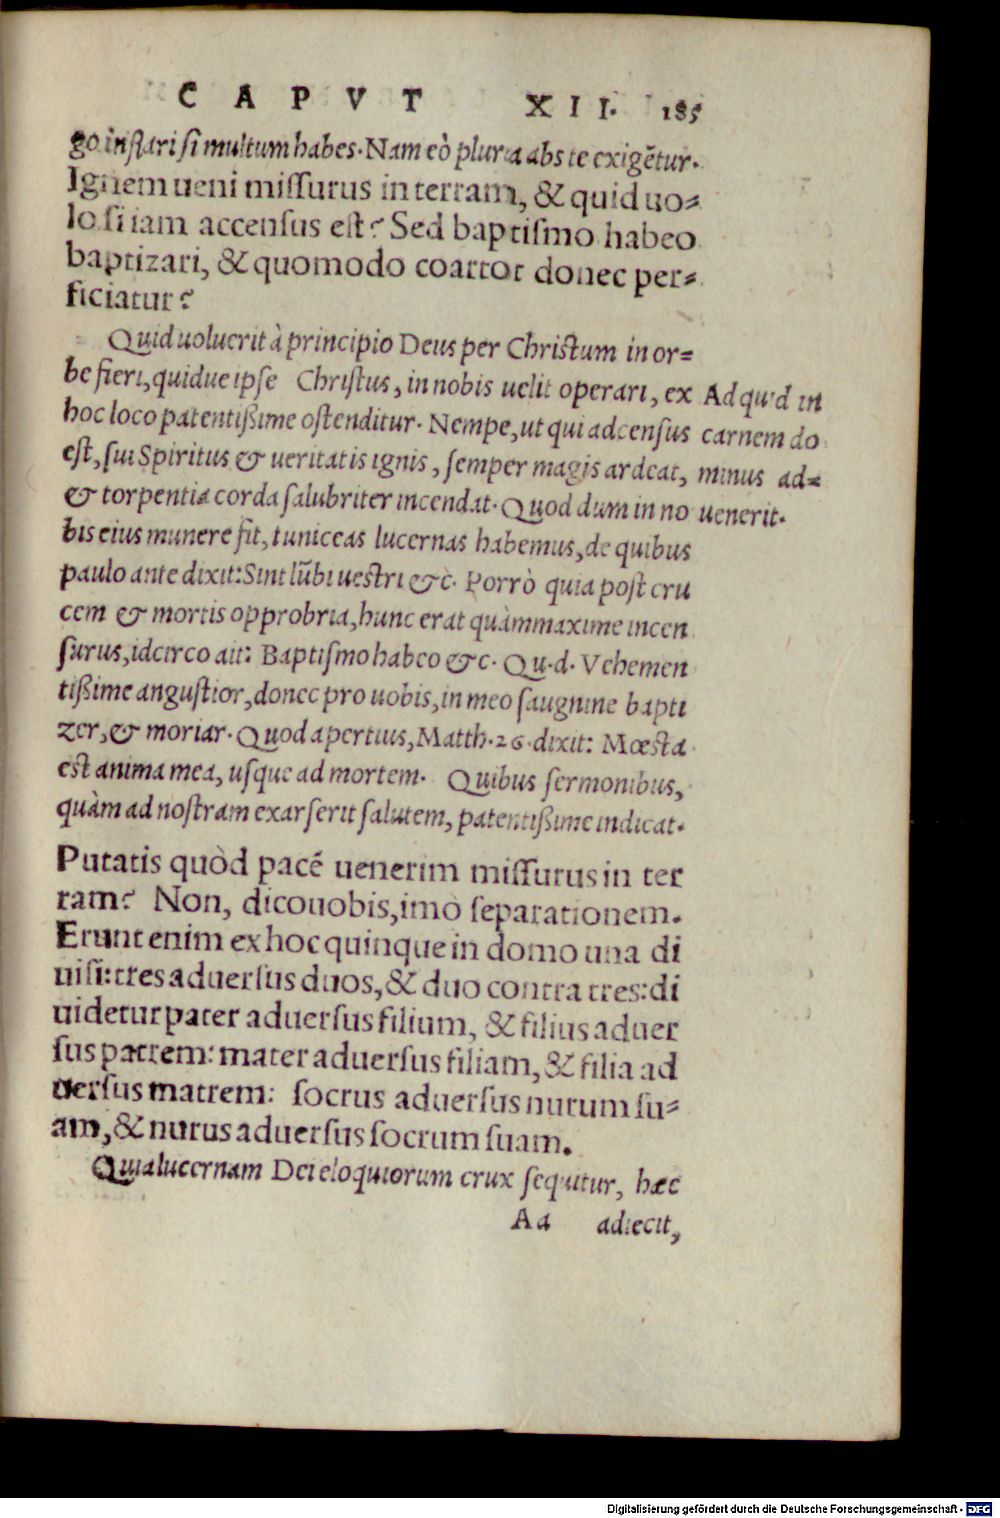 CAPVT XII. 185
go inſtari ſi multum habes. Nam eò plura abs te exigētur.
Ignem ueni miſſurus in terram, & quid uo-
lo ſi iam accenſus eſt? Sed baptiſmo habeo
baptizari, & quomodo coarctor donec per-
ficiatur?
Quid uoluerit à principio Deus per Chriſtum in or-
be fieri, quidue ipſe Chriſtus, in nobis uelit operari, ex
hoc loco patentißime oſtenditur. Nempe, ut qui adcenſus
eſt, ſui Spiritus & ueritatis ignis, ſemper magis ardeat,
& torpentia corda ſalubriter incendat. Quod dum in no
bis eius munere fit, tunc eas lucernas habemus, de quibus
paulo ante dixit: Sint lūbi ueſtri &c. Porrò quia poſt cru
cem & mortis opprobria, hunc erat quàm maxime incen
ſurus, idcirco ait: Baptiſmo habeo &c. Qu. d. Vehemen
tißime anguſtior, donec pro uobis, in meo ſaugnine bapti
zer, & moriar. Quod apertius, Matth. 26. dixit: Mœſta
eſt anima mea, uſque ad mortem. Quibus ſermonibus,
quàm ad noſtram exarſerit ſalutem, patentißime indicat.
Ad quid in
carnem do
minus ad-
uenerit.
Putatis quòd pacē uenerim miſſurus in ter
ram? Non, dico uobis, imò ſeparationem.
Erunt enim ex hoc quinque in domo una di
uiſi: tres aduerſus duos, & duo contra tres: di
uidetur pater aduerſus filium, & filius aduer
ſus patrem: mater aduerſus filiam, & filia ad
uerſus matrem: ſocrus aduerſus nurum ſu-
am, & nurus aduerſus ſocrum ſuam.
Quia lucernam Dei eloquiorum crux ſequitur, hæc
Aa adiecit,
Digitalisierung gefördert durch die Deutsche Forschungsgemeinschaft - DFG